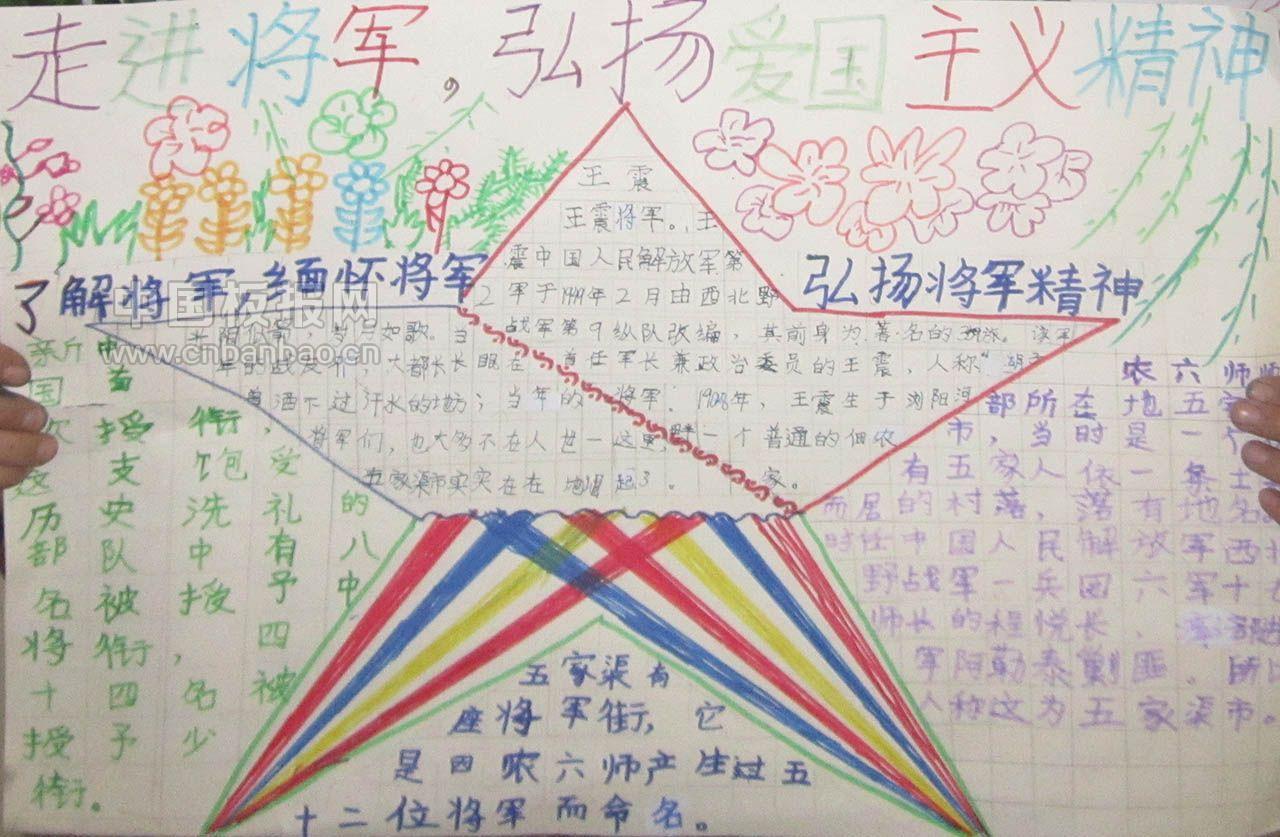 走进将军,弘扬爱国主义精神
了解将军,缅怀将军
弘扬将军精神
中国板报网
www.cnbanbao.cn
王震
王震将军。王
震中国人民解放军第
2军于1949年2月由西北野
战军第9纵队改编,其前身为著名的
首任军长兼政治委员的王震,人称"
将军。1908年,王震生于浏阳河
一个普通的佃农
家。
岁月如�。当
年的战友们,大都长眠在
曾洒下过汗水的地方;当年的
将军们,也大多不在人世一这里,
五家渠市实实在在地崛起了。
国 首
次 授 衔,
这 支 饱 受
历 史 洗 礼 的
部 队 中 有 八
名 被 授 予 中
将 衔, 四
十 四 名 被
授 予 少
将衔。
五家渠有
座将军街,它
是四农六师产生过五
十二位将军而命名。
农六师师
部所在地五家
市,当时是一个
有五家人依一条土
而居的村落,落有地名
时任中国人民解放军西北
野战军一兵团六军十七
师长的程悦长,率部进
军阿勒泰剿匪。所以
人称这为五家渠市。